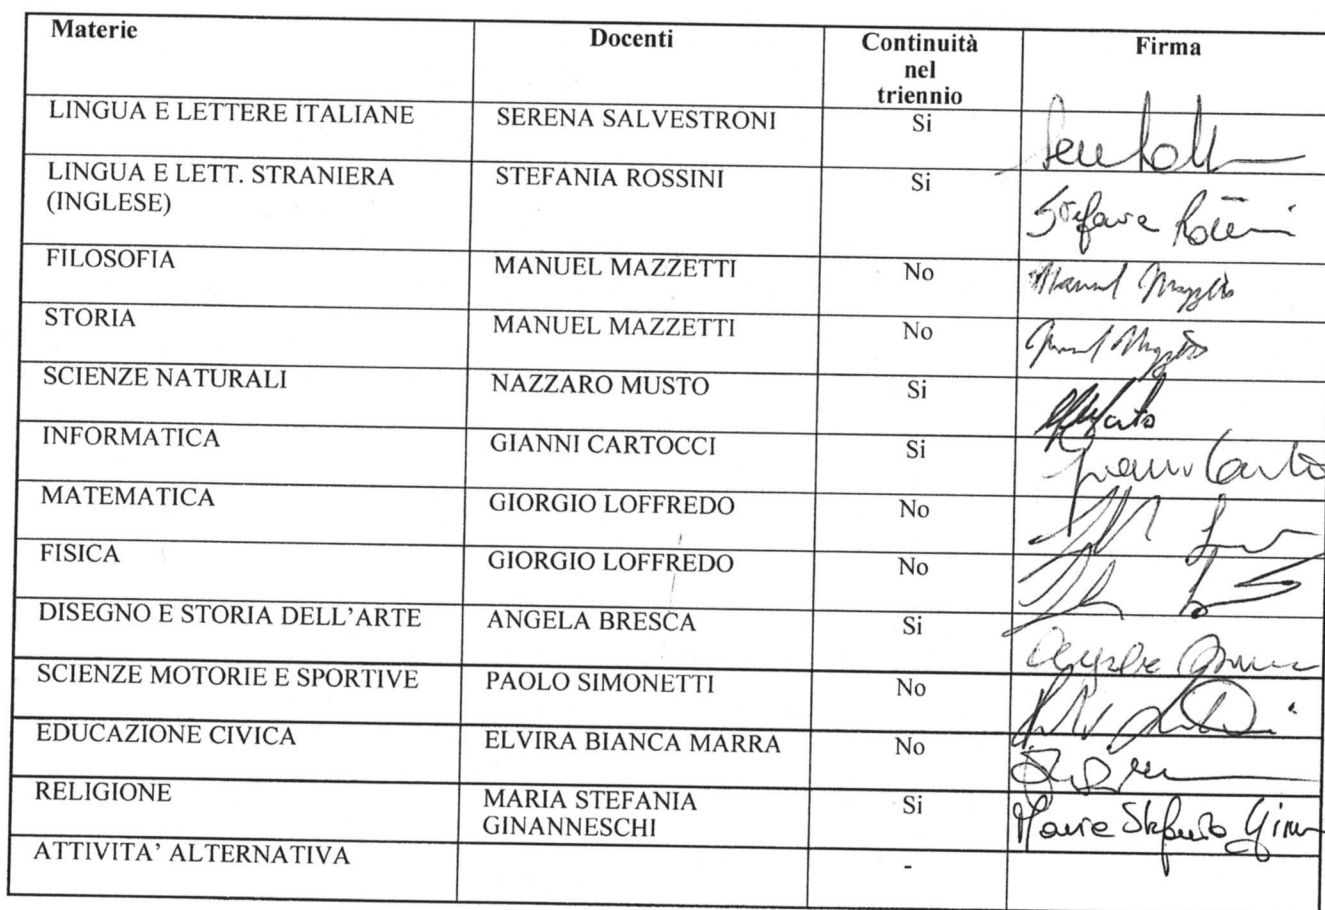 Materie Docenti Continuità nel triennio Firma
LINGUA E LETTERE ITALIANE SERENA SALVESTRONI Si
LINGUA E LETT. STRANIERA (INGLESE) STEFANIA ROSSINI Si
FILOSOFIA MANUEL MAZZETTI No
STORIA MANUEL MAZZETTI No
SCIENZE NATURALI NAZZARO MUSTO Si
INFORMATICA GIANNI CARTOCCI Si
MATEMATICA GIORGIO LOFFREDO No
FISICA GIORGIO LOFFREDO No
DISEGNO E STORIA DELL'ARTE ANGELA BRESCA Si
SCIENZE MOTORIE E SPORTIVE PAOLO SIMONETTI No
EDUCAZIONE CIVICA ELVIRA BIANCA MARRA No
RELIGIONE MARIA STEFANIA GINANNESCHI Si
ATTIVITA' ALTERNATIVA -